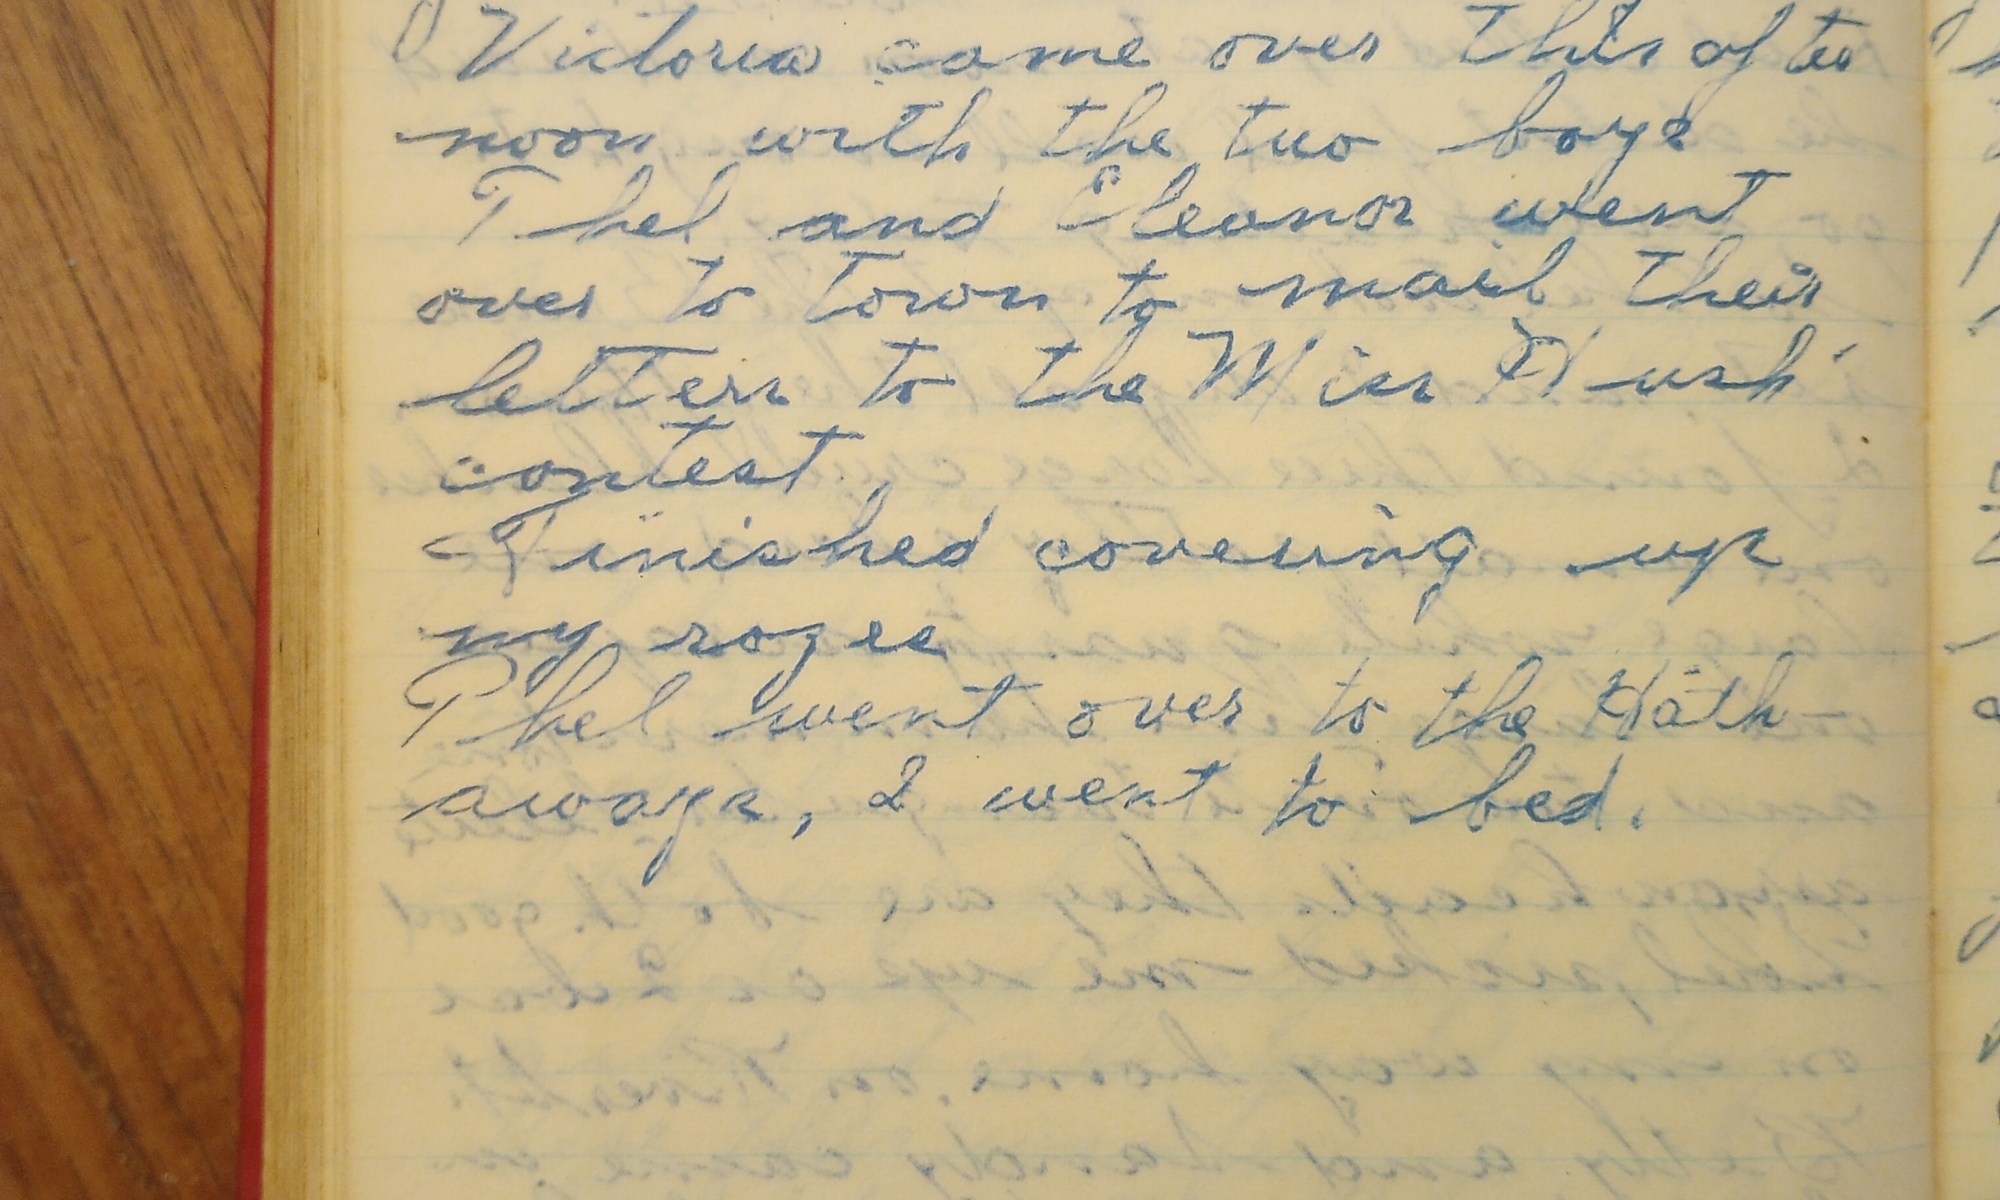 Victoria came over this after
noon with the two boys
Thel and Eleanor went
over to town to mail their
letters to the Miss Hush
contest.
Finished covering up
my roses
Thel went over to the Hath-
aways, I went to bed.